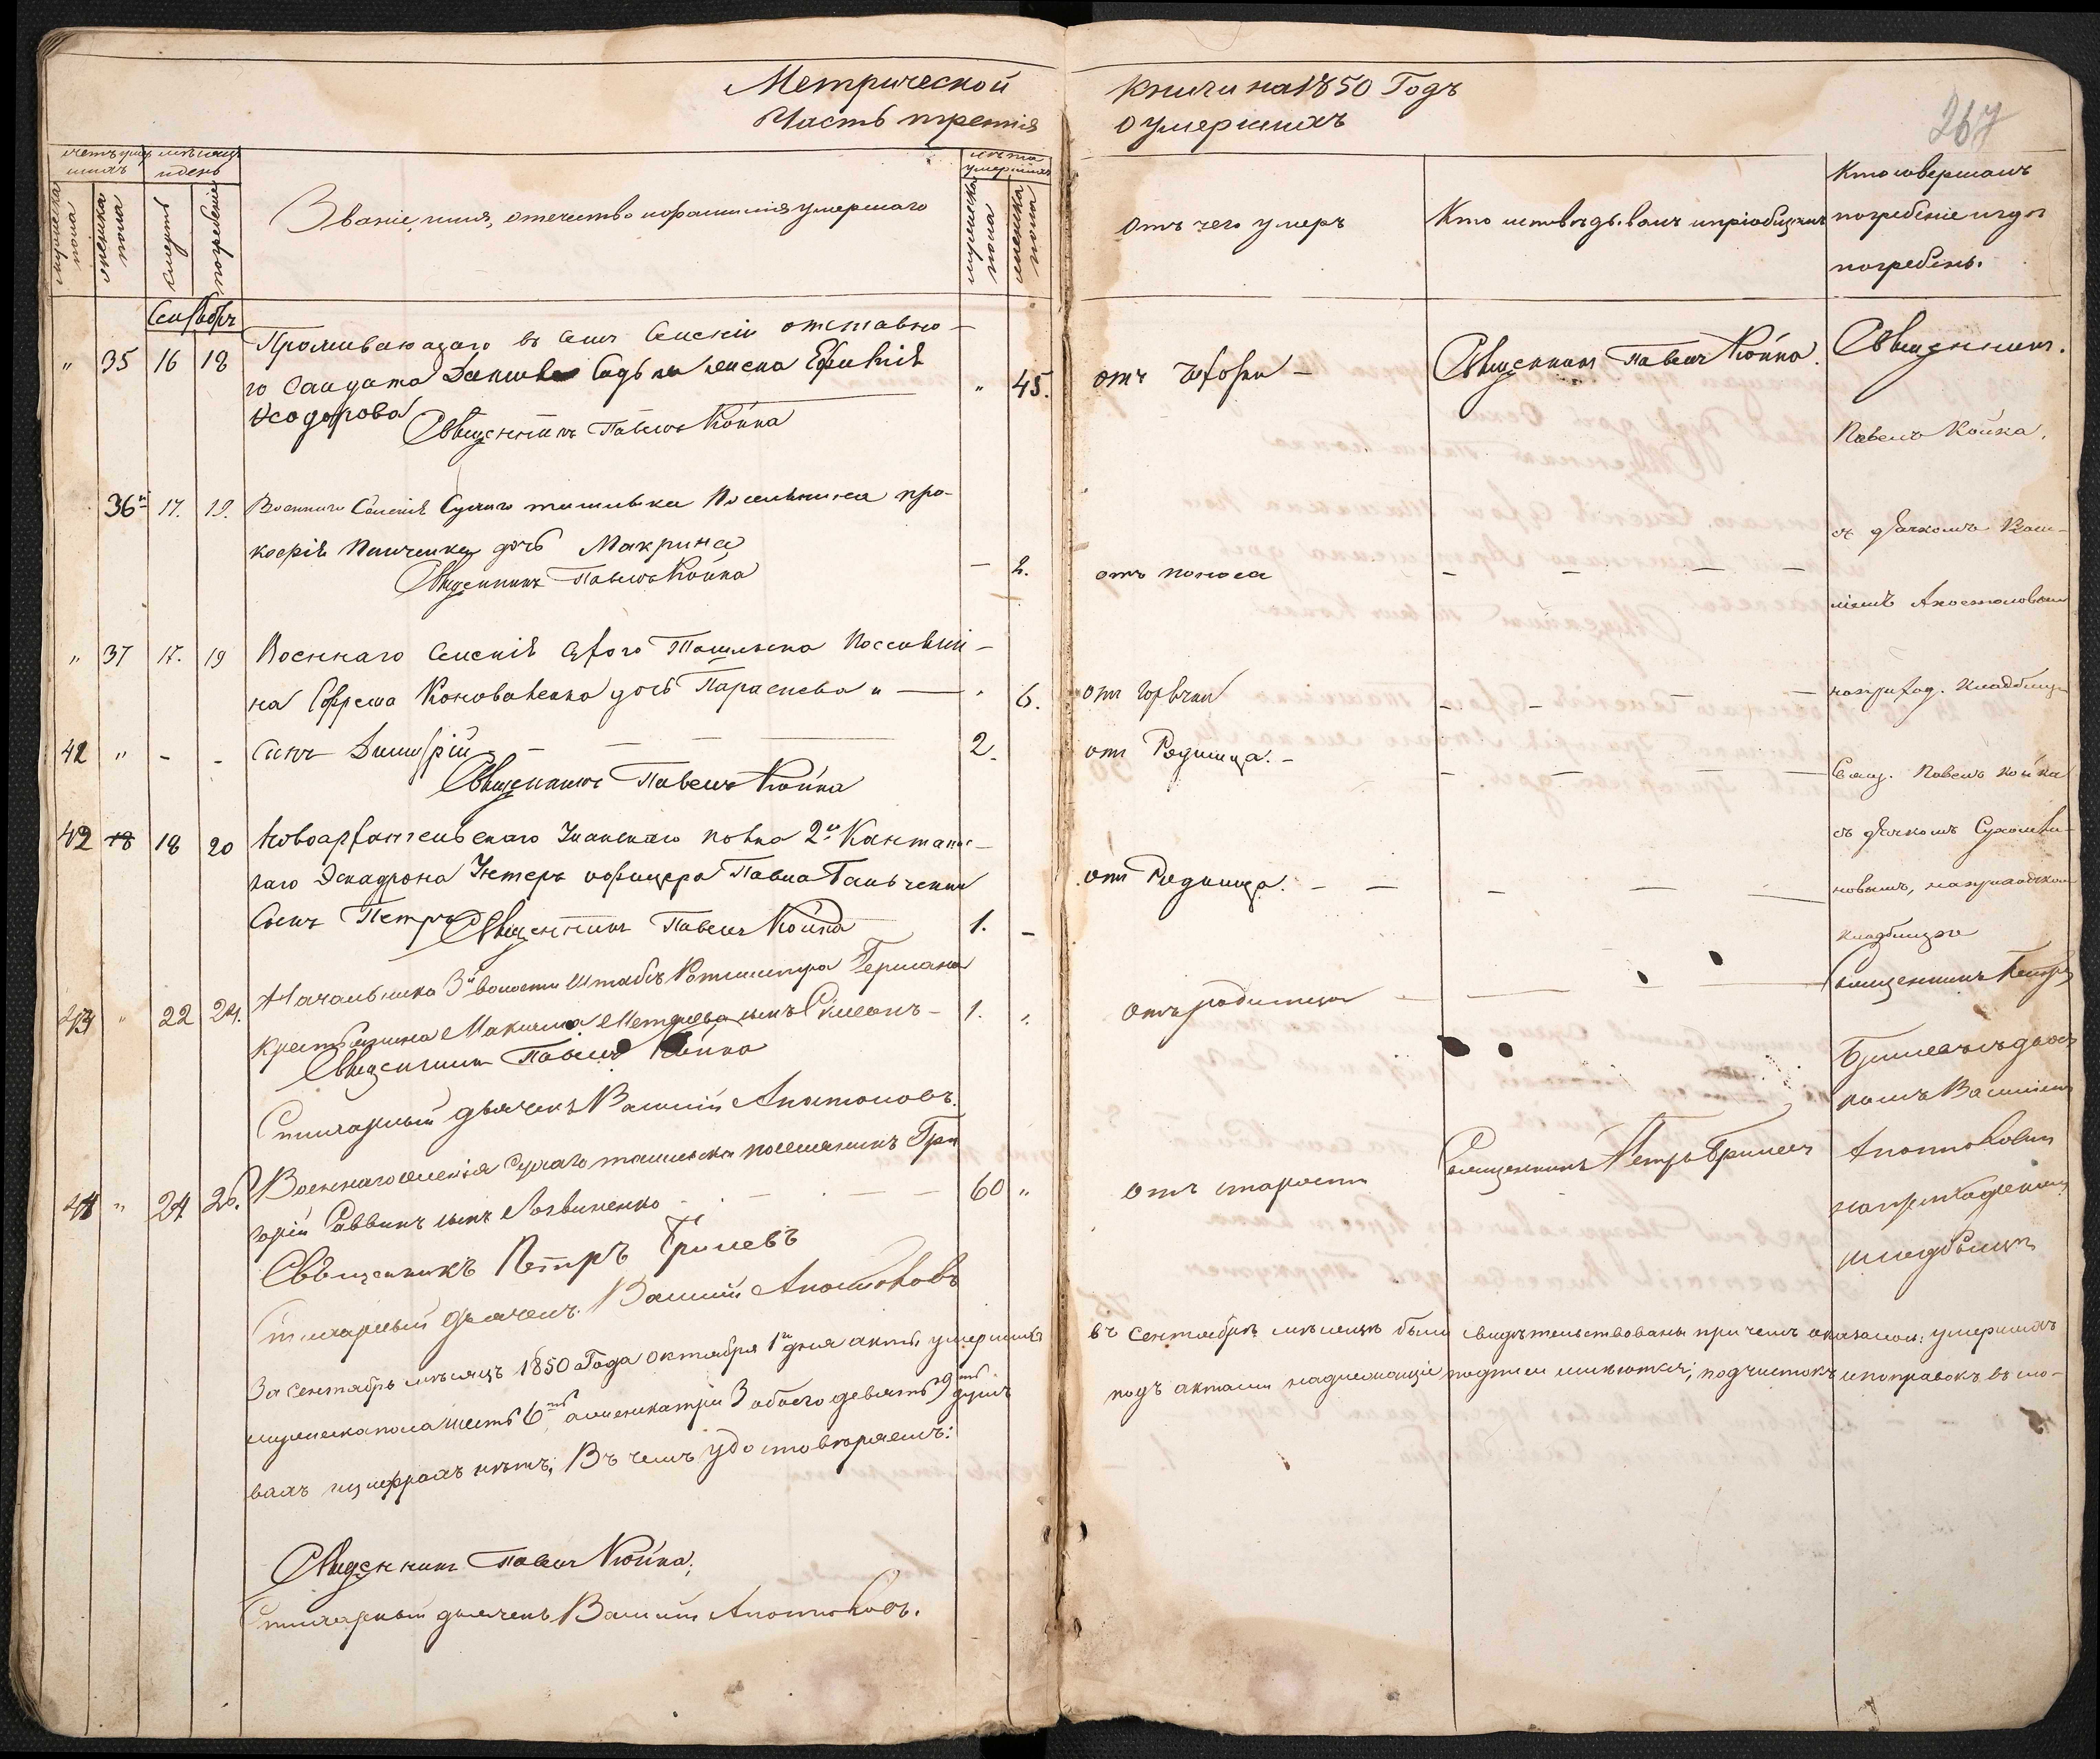 Метрической
Часть третія
книги на 1850 Годъ
о умершихъ
267
мужеска пола
женска пола
смерти
погребенія
Званіе, имя, отечество и фамилія умершаго
лѣта умершихъ
мужеска пола
женска пола
отъ чего умеръ
Кто исповѣдывалъ и пріобщалъ
Кто совершалъ
погребеніе и гдѣ
погребены.
" 35 16 18
Проживающаго въ отставно-
го Салдата жена
Ѳеодорова
" 45.
Священникъ Павелъ Койка
отъ
Священникъ Павелъ Койка.
Священник.
Павелъ Койка,
36й 17. 19. Военнаго Селенія Сухаго ташлыка Поселянина про-
кофія Панченка дочь Макрина
— 2.
Священникъ Павелъ Койка
отъ поноса — — — —
съ дьячкомъ Васи-
ліемъ Апостоловым
" 37 17. 19 Военнаго Селенія Сухого Ташлыка Поселяни-
на Ефрема Коноваленка дочь Параскева " — " 6.
отъ Горячки — — — —
на приход. Кладбищѣ
42 " - - Сынъ Димитрій — — — 2.
Священникъ Павелъ Койка
отъ Родимца. — — — — —
Свящ. Павелъ Койка
42 18 18 20 Новоархангельскаго Уланскаго полка 2й Кантонис-
каго Эскадрона Унтеръ офицера Павла
Сынъ Петръ
Священникъ Павелъ Койка
1. -
отъ Родимца. — — — — —
съ дьячкомъ
новымъ, на приходском
кладбищѣ
43 " 22 24. Начальника 3й волости Штабсъ Ротмистра Германа
крестьянина Максима сынъ Симеонъ - 1. "
Священникъ Павелъ Койка
Стихарный дьячекъ Василій Апостоловъ.
отъ родимца — — —
Священникъ Петръ
Гришевъ съ дьяч
комъ Василіемъ
Апостоловым
на приходском
кладбищѣ
44 " 24 26. Военнаго селенія Сухаго ташлыка поселянинъ Гри
горій Саввинъ сынъ Логвиненко — — — 60 "
Священникъ Петръ Гришевъ
Стихарный дьячекъ Василій Апостоловъ
отъ старости
Священникъ Петръ Гришевъ
За сентябрь мѣсяцъ 1850 Года октября 1го дня акты умершихъ
въ Сентябрѣ мѣсяцѣ были свидѣтельствованы при чемъ оказалось: умершихъ
мужеска пола шесть 6ть, а женска три 3 обоего девять 9ть душъ
подъ актами надлежащіе подписи имѣются; подчистокъ и поправокъ въ сло-
вахъ и цифрахъ нѣтъ; Въ чемъ удостовѣряемъ:
Священникъ Павелъ Койка;
Стихарный дьячекъ Василій Апостоловъ.